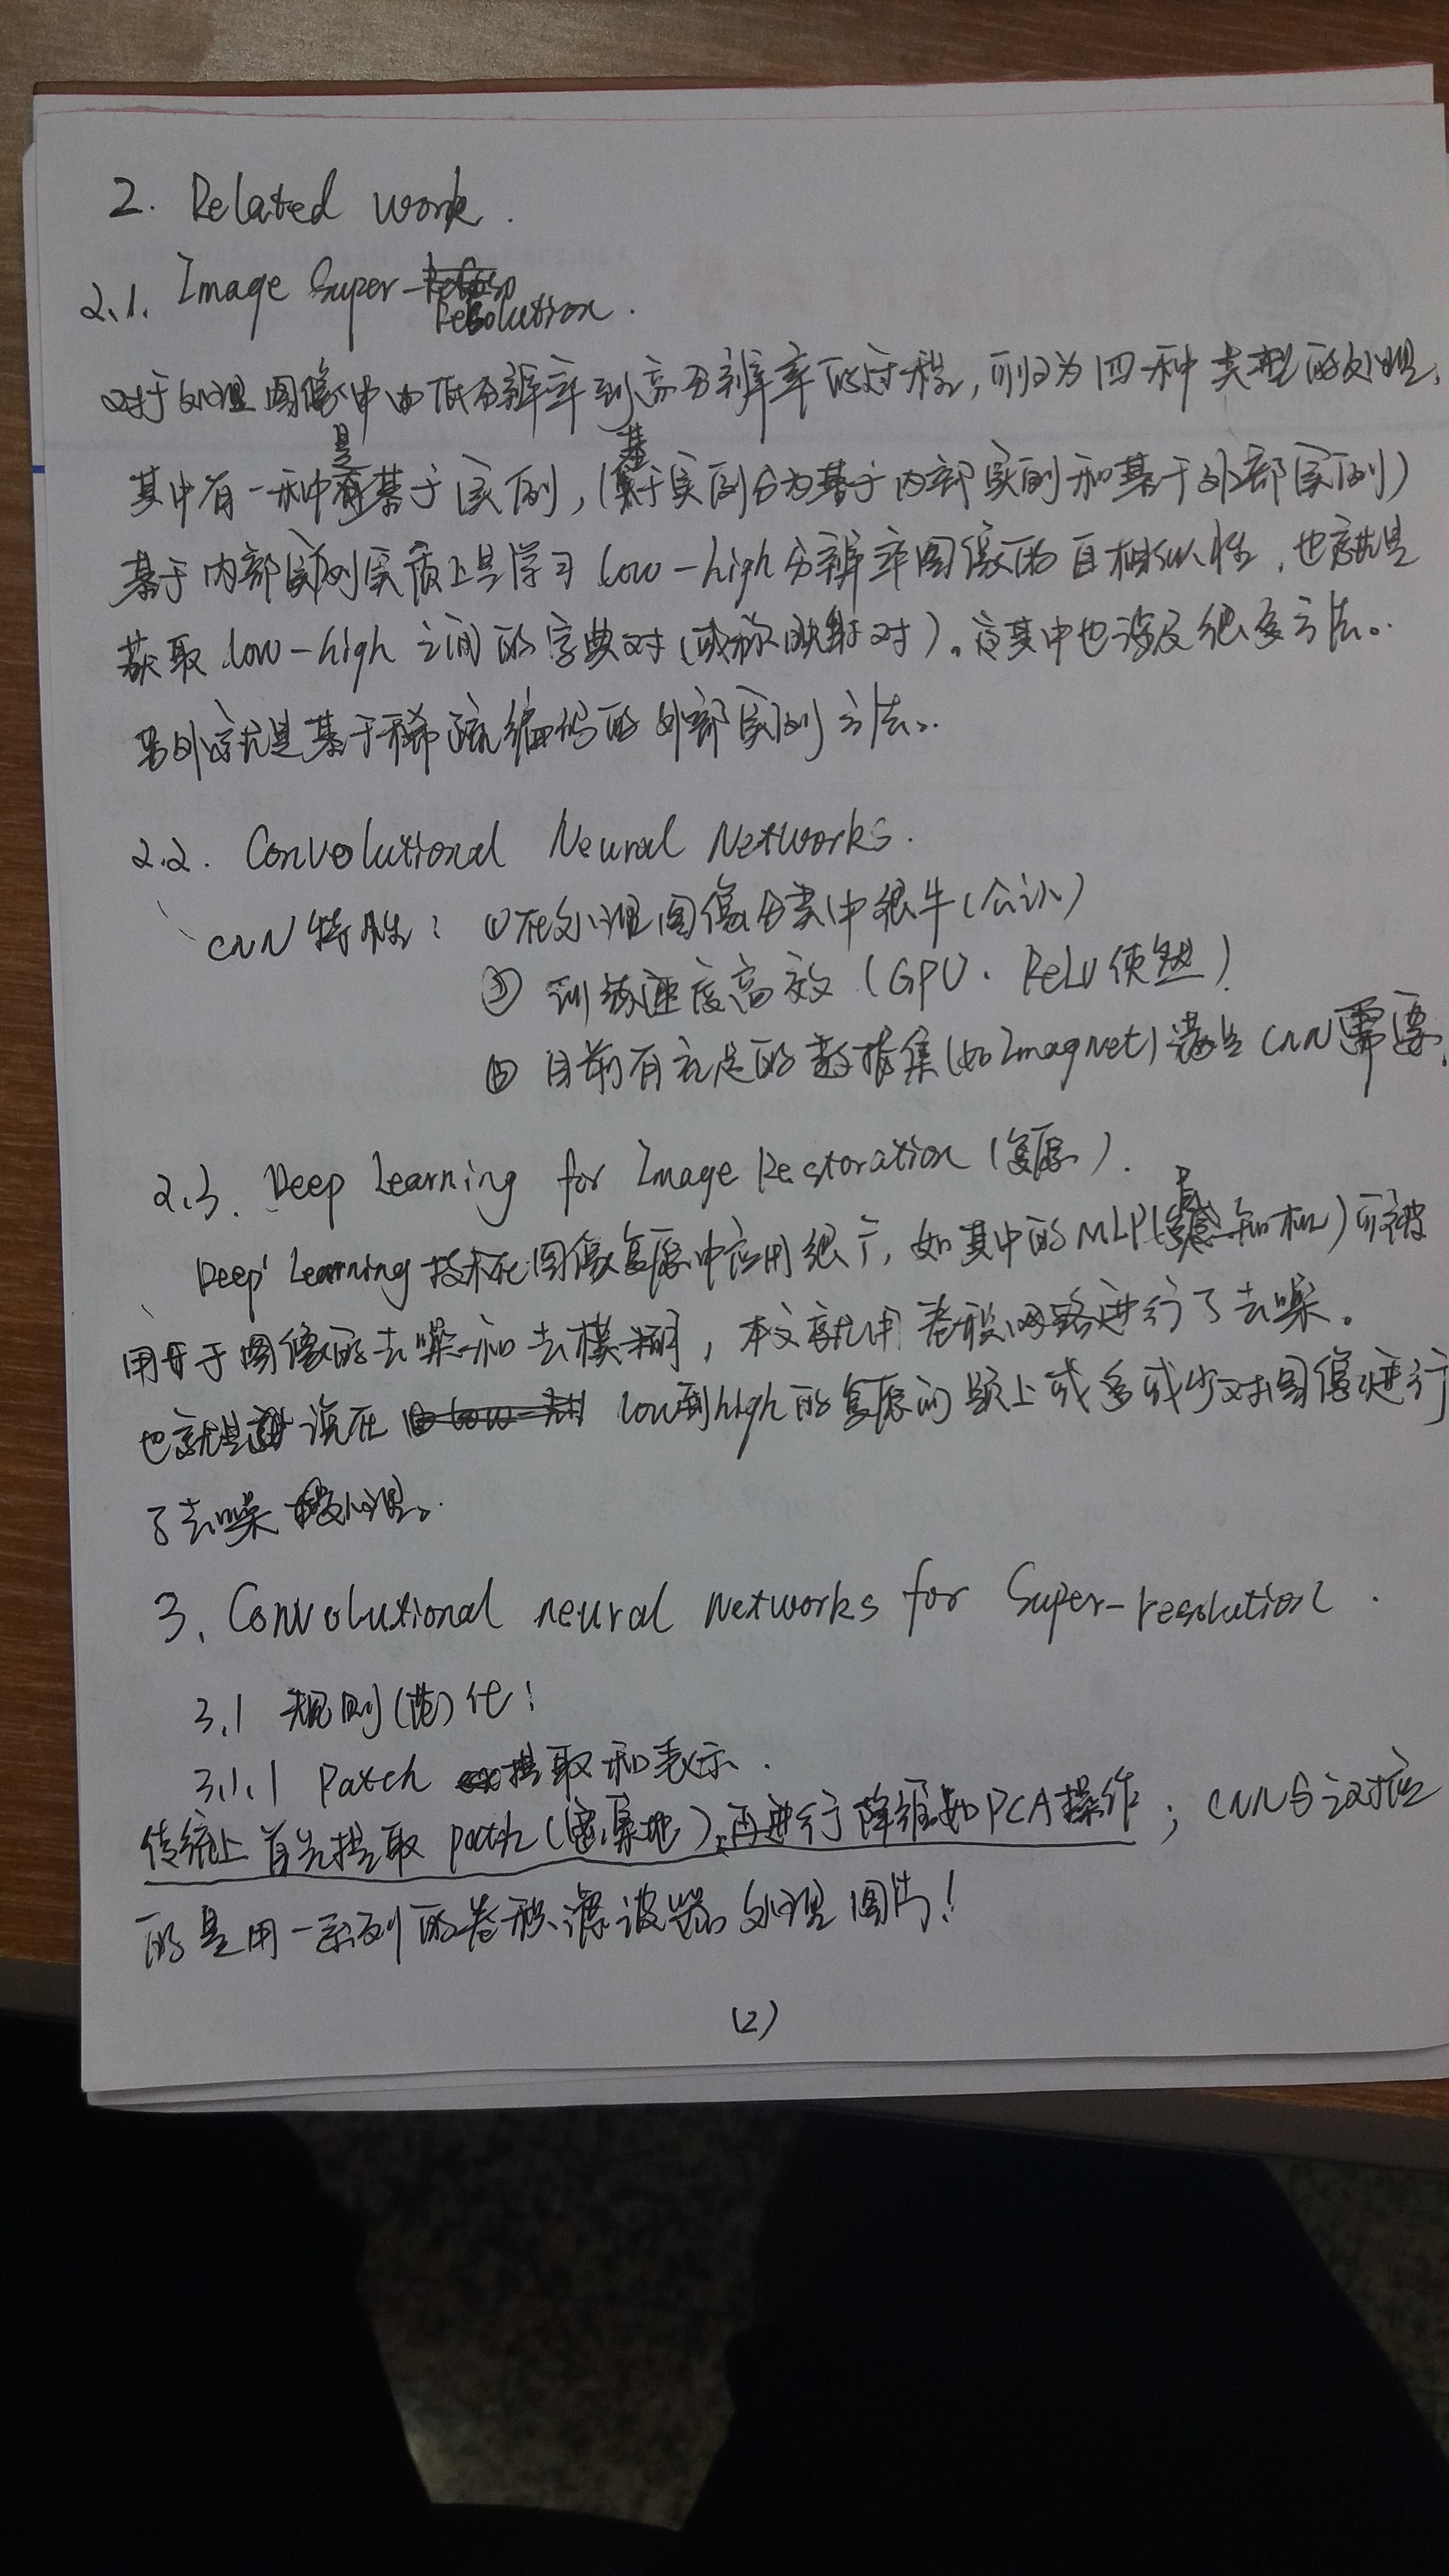 2. Related work.
2.1. Image Super-Resolution.
对于处理图像中由低分辨率到高分辨率的过程，可归为四种类型的处理，
其中有一种是基于实例，(基于实例分为基于内部实例和基于外部实例)
基于内部实例实质上是学习 low-high 分辨率图像的自相似性，也就是
获取 low-high 之间的字典对(或称映射对)。这其中也涉及很多方法。
另外就是基于稀疏编码的外部实例方法。
2.2. Convolutional Neural Networks.
CNN特性：①在处理图像分类中很牛(公认)
② 训练速度高效 (GPU、ReLU使然)
③ 目前有充足的数据集(如Imagnet)满足CNN需要.
2.3. Deep Learning for Image Restoration (复原).
Deep Learning技术在图像复原中应用很广，如其中的MLP(感知机)可被
用于图像的去噪和去模糊，本文就用卷积网络进行了去噪。
也就是说在 low到high的复原问题上或多或少对图像进行
了去噪处理。
3. Convolutional neural networks for Super-resolution.
3.1 规则(范)化！
3.1.1 Patch 提取和表示.
传统上首先提取 patch (密集地)，再进行降维如PCA操作；CNN与之对应
的是用一系列的卷积滤波器处理图片！
(2)